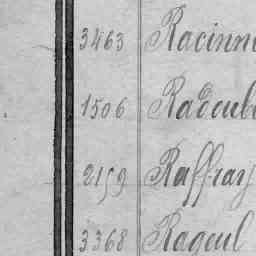 3463 Racinn
1506 Radoub
2159 Raffray
3368 Rageul